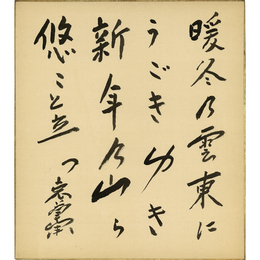 暖冬乃雲東に
うごきゆき
新年乃山ら
悠こと立つ